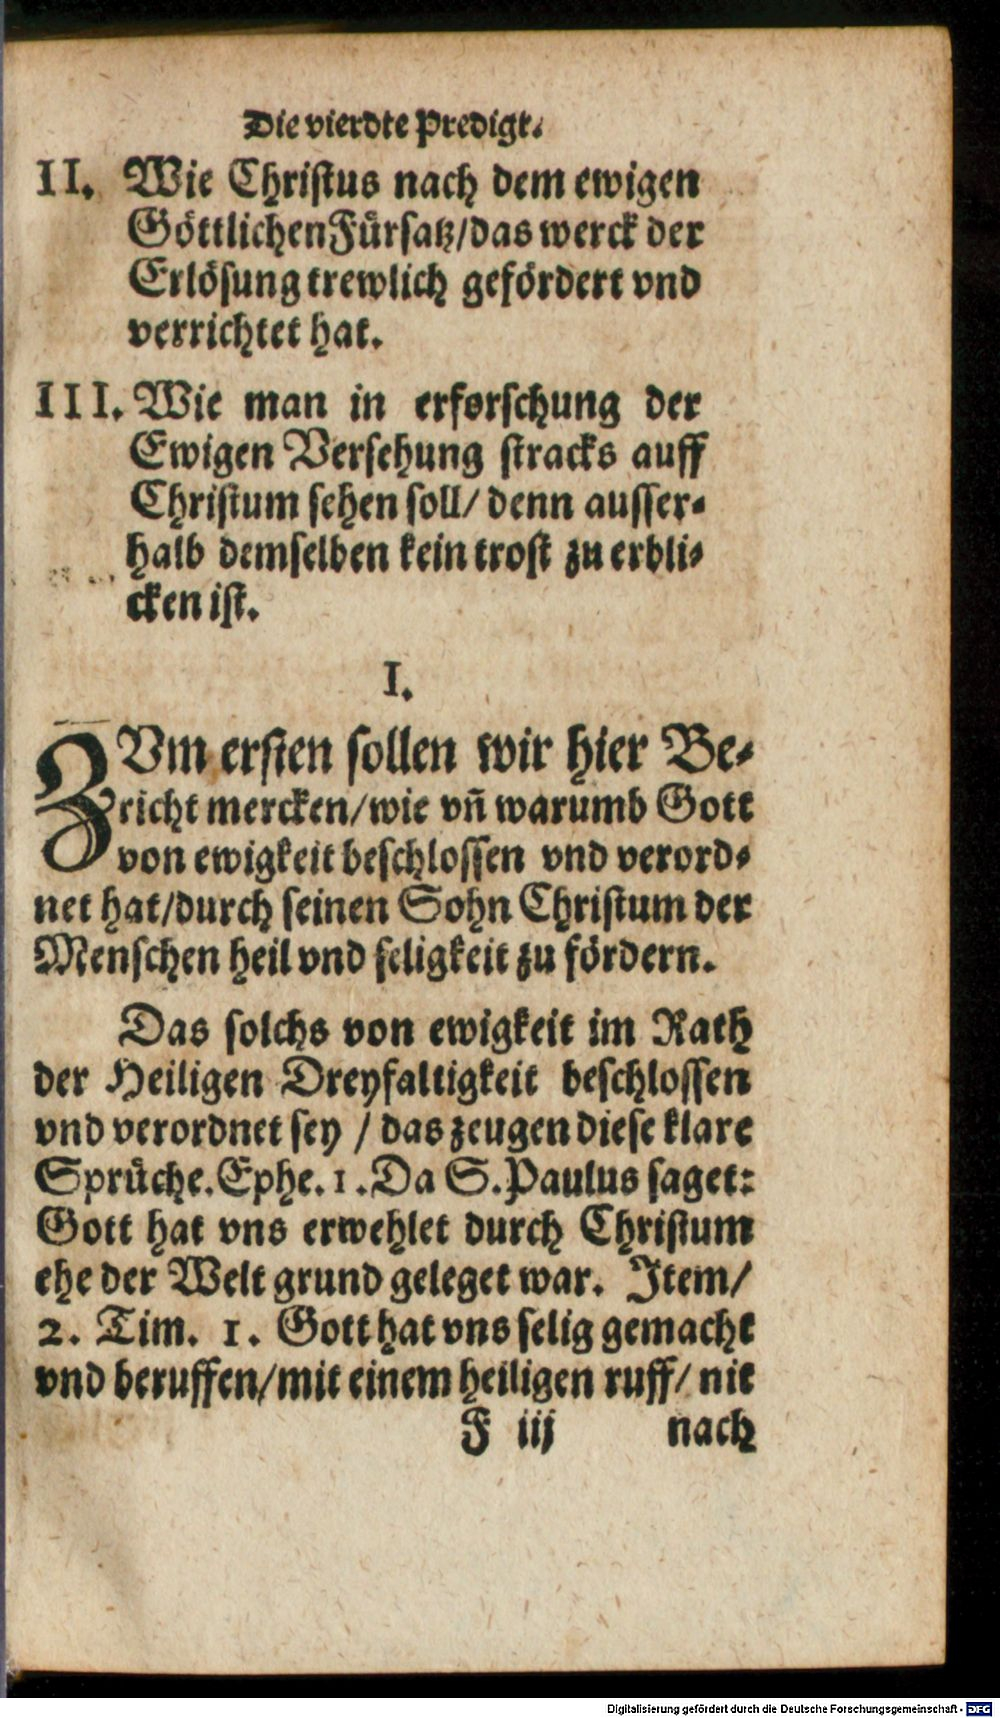 Die vierdte Predigt.
II. Wie Christus nach dem ewigen
Göttlichen Fürsatz/das werck der
Erlösung trewlich gefördert vnd
verrichtet hat.
III. Wie man in erforschung der
Ewigen Versehung stracks auff
Christum sehen soll/ denn ausser-
halb demselben kein trost zu erbli-
cken ist.
I.
ZVm ersten sollen wir hier Be-
richt mercken/wie vn̄ warumb Gott
von ewigkeit beschlossen vnd verord-
net hat/durch seinen Sohn Christum der
Menschen heil vnd seligkeit zu fördern.
Das solchs von ewigkeit im Rath
der Heiligen Dreyfaltigkeit beschlossen
vnd verordnet sey / das zeugen diese klare
Sprüche. Ephe. 1. Da S. Paulus saget:
Gott hat vns erwehlet durch Christum
ehe der Welt grund geleget war. Item/
2. Tim. 1. Gott hat vns selig gemacht
vnd beruffen/mit einem heiligen ruff/ nit
F iij nach
Digitalisierung gefördert durch die Deutsche Forschungsgemeinschaft - DFG